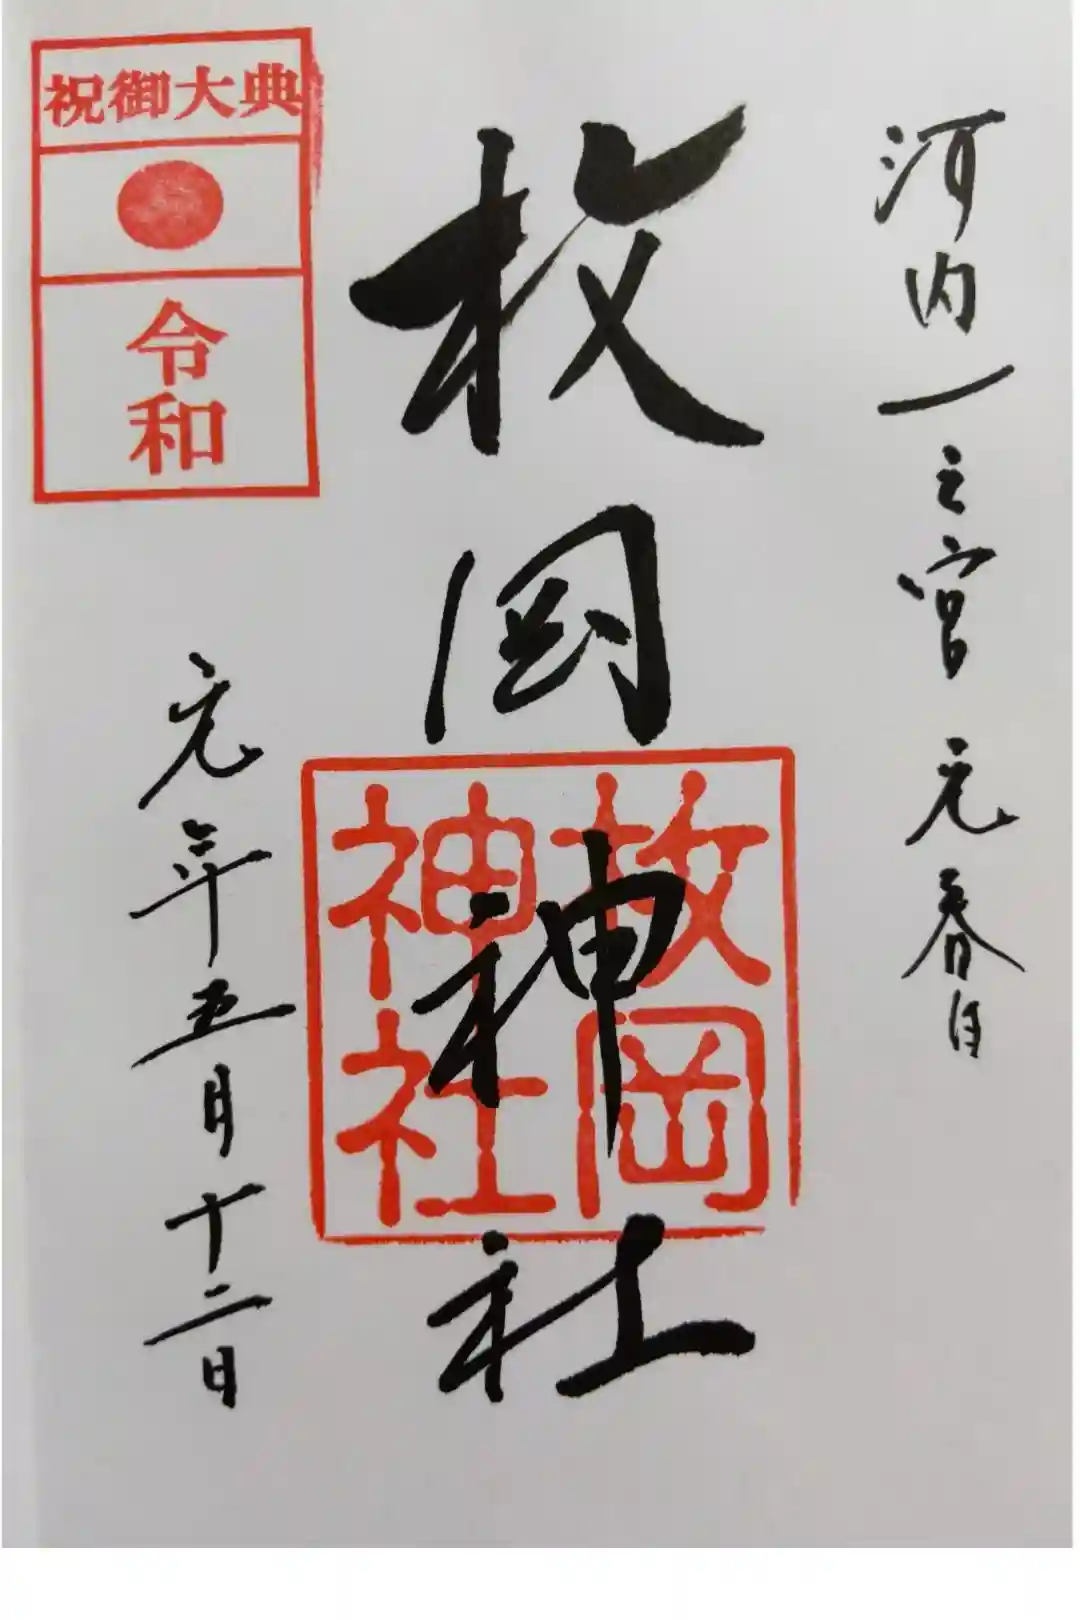 河内一之宮 元春日
枚岡神社
枚岡
神社
祝御大典
令和
元年五月十二日